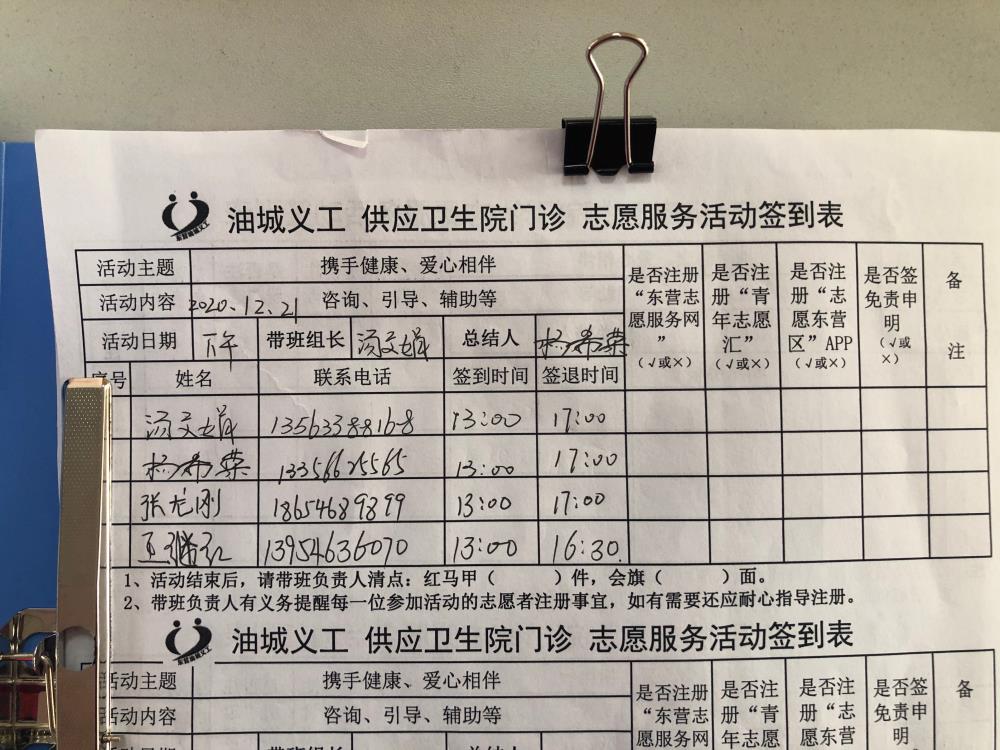 油城义工 供应卫生院门诊 志愿服务活动签到表
活动主题 携手健康、爱心相伴 是否注册“东营志愿服务网”（√或×） 是否注册“青年志愿汇”（√或×） 是否注册“志愿东营区”APP（√或×） 是否签免责申明（√或×） 备注
活动内容 2020.12.21 咨询、引导、辅助等
活动日期 下午 带班组长 汤文娟 总结人 杨希荣
序号 姓名 联系电话 签到时间 签退时间
汤文娟 13563388168 13:00 17:00
杨希荣 13356625565 13:00 17:00
张龙刚 18654689899 13:00 17:00
13954636070 13:00 16:30
1、活动结束后，请带班负责人清点：红马甲（ ）件，会旗（ ）面。
2、带班负责人有义务提醒每一位参加活动的志愿者注册事宜，如有需要还应耐心指导注册。
油城义工 供应卫生院门诊 志愿服务活动签到表
活动主题 携手健康、爱心相伴 是否注册“东营志愿服务网 是否注册“青年志愿 是否注册“志愿东营 是否签免责申明 备
活动内容 咨询、引导、辅助等